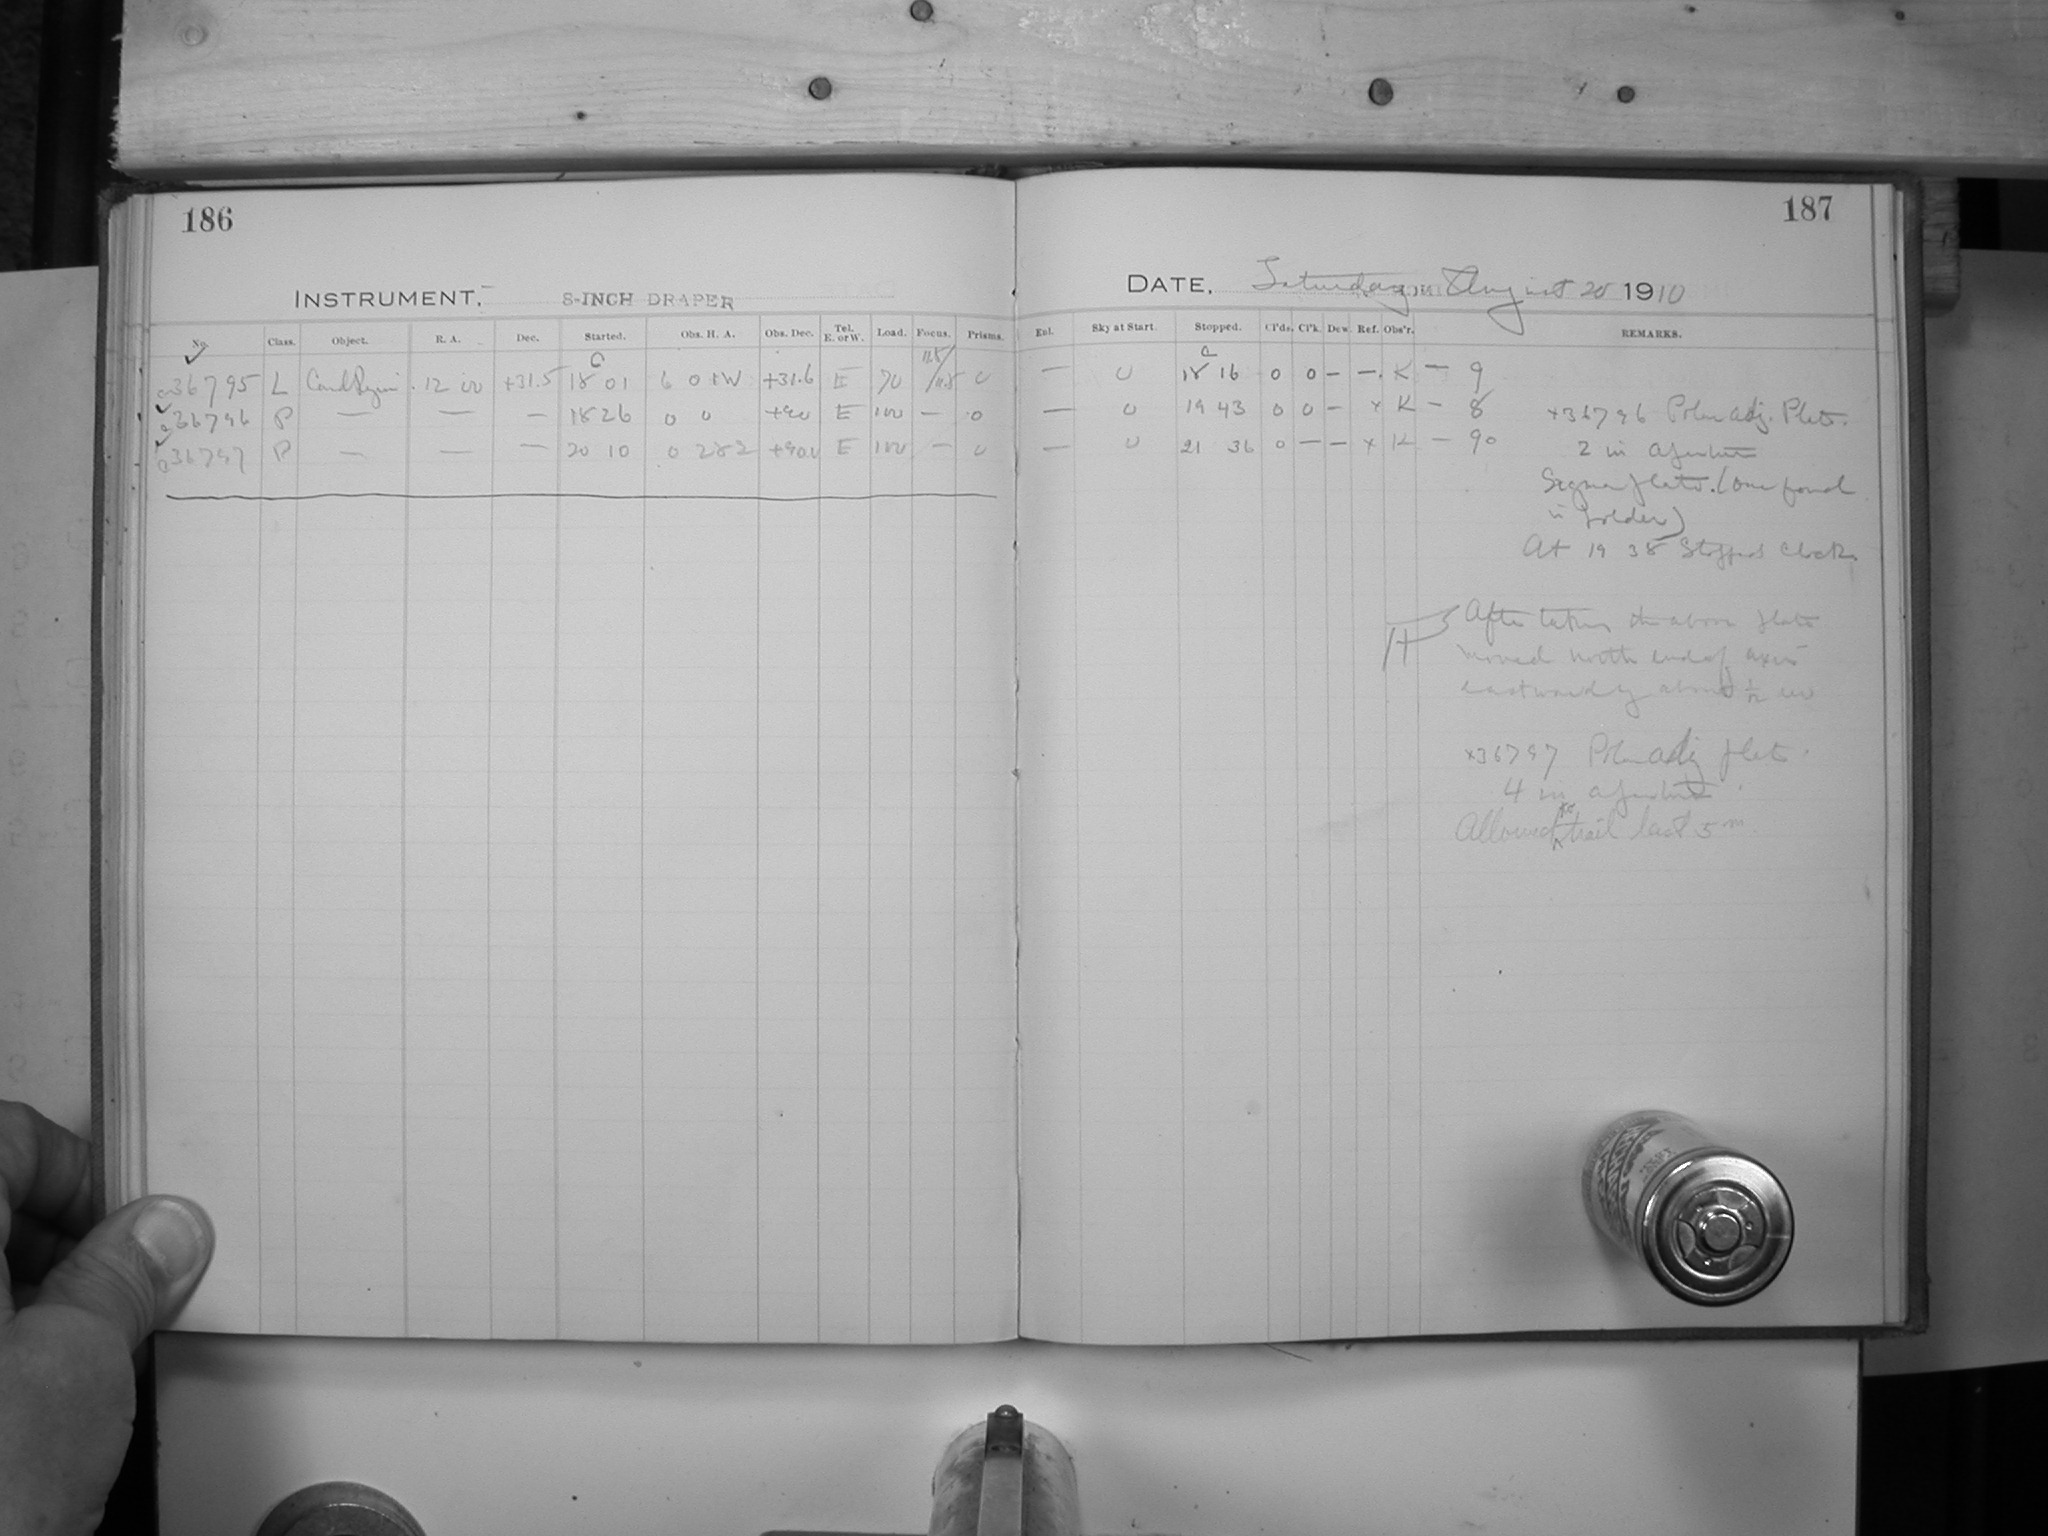 186
187
INSTRUMENT. 8-INCH DRAPER
DATE. Saturday August 20 1910
No. Class. Object. R. A. Dec. Started. Obs. H. A. Obs. Dec. Tel. E. or W. Load. Focus. Prisms. Enl. Sky at Start. Stopped. Cl'ds. Cl'k. Dew. Ref. Obs'r. REMARKS.
36795 L 12 00 +31.5 18 01 6 0 +W +31.6 E 70 0 — 0 18 16 0 0 — — K — 9
36796 P — — — 18 26 0 0 +90 E 100 — 0 — 0 19 43 0 0 — x K — 8 x36796 Polar adj. Plate.
36797 P — — — 20 10 0 282 +90.0 E 100 — 0 — 0 21 36 0 — — x K — 90 2 in aperture
Sigma plate. (One found
in holder)
At 19 38 Stopped Clock.
After taking the above plate
moved north end of axis
eastwardly about 1/2
x36797 Polar adj plate.
4 in aperture.
Allowed to trail last 5 m.